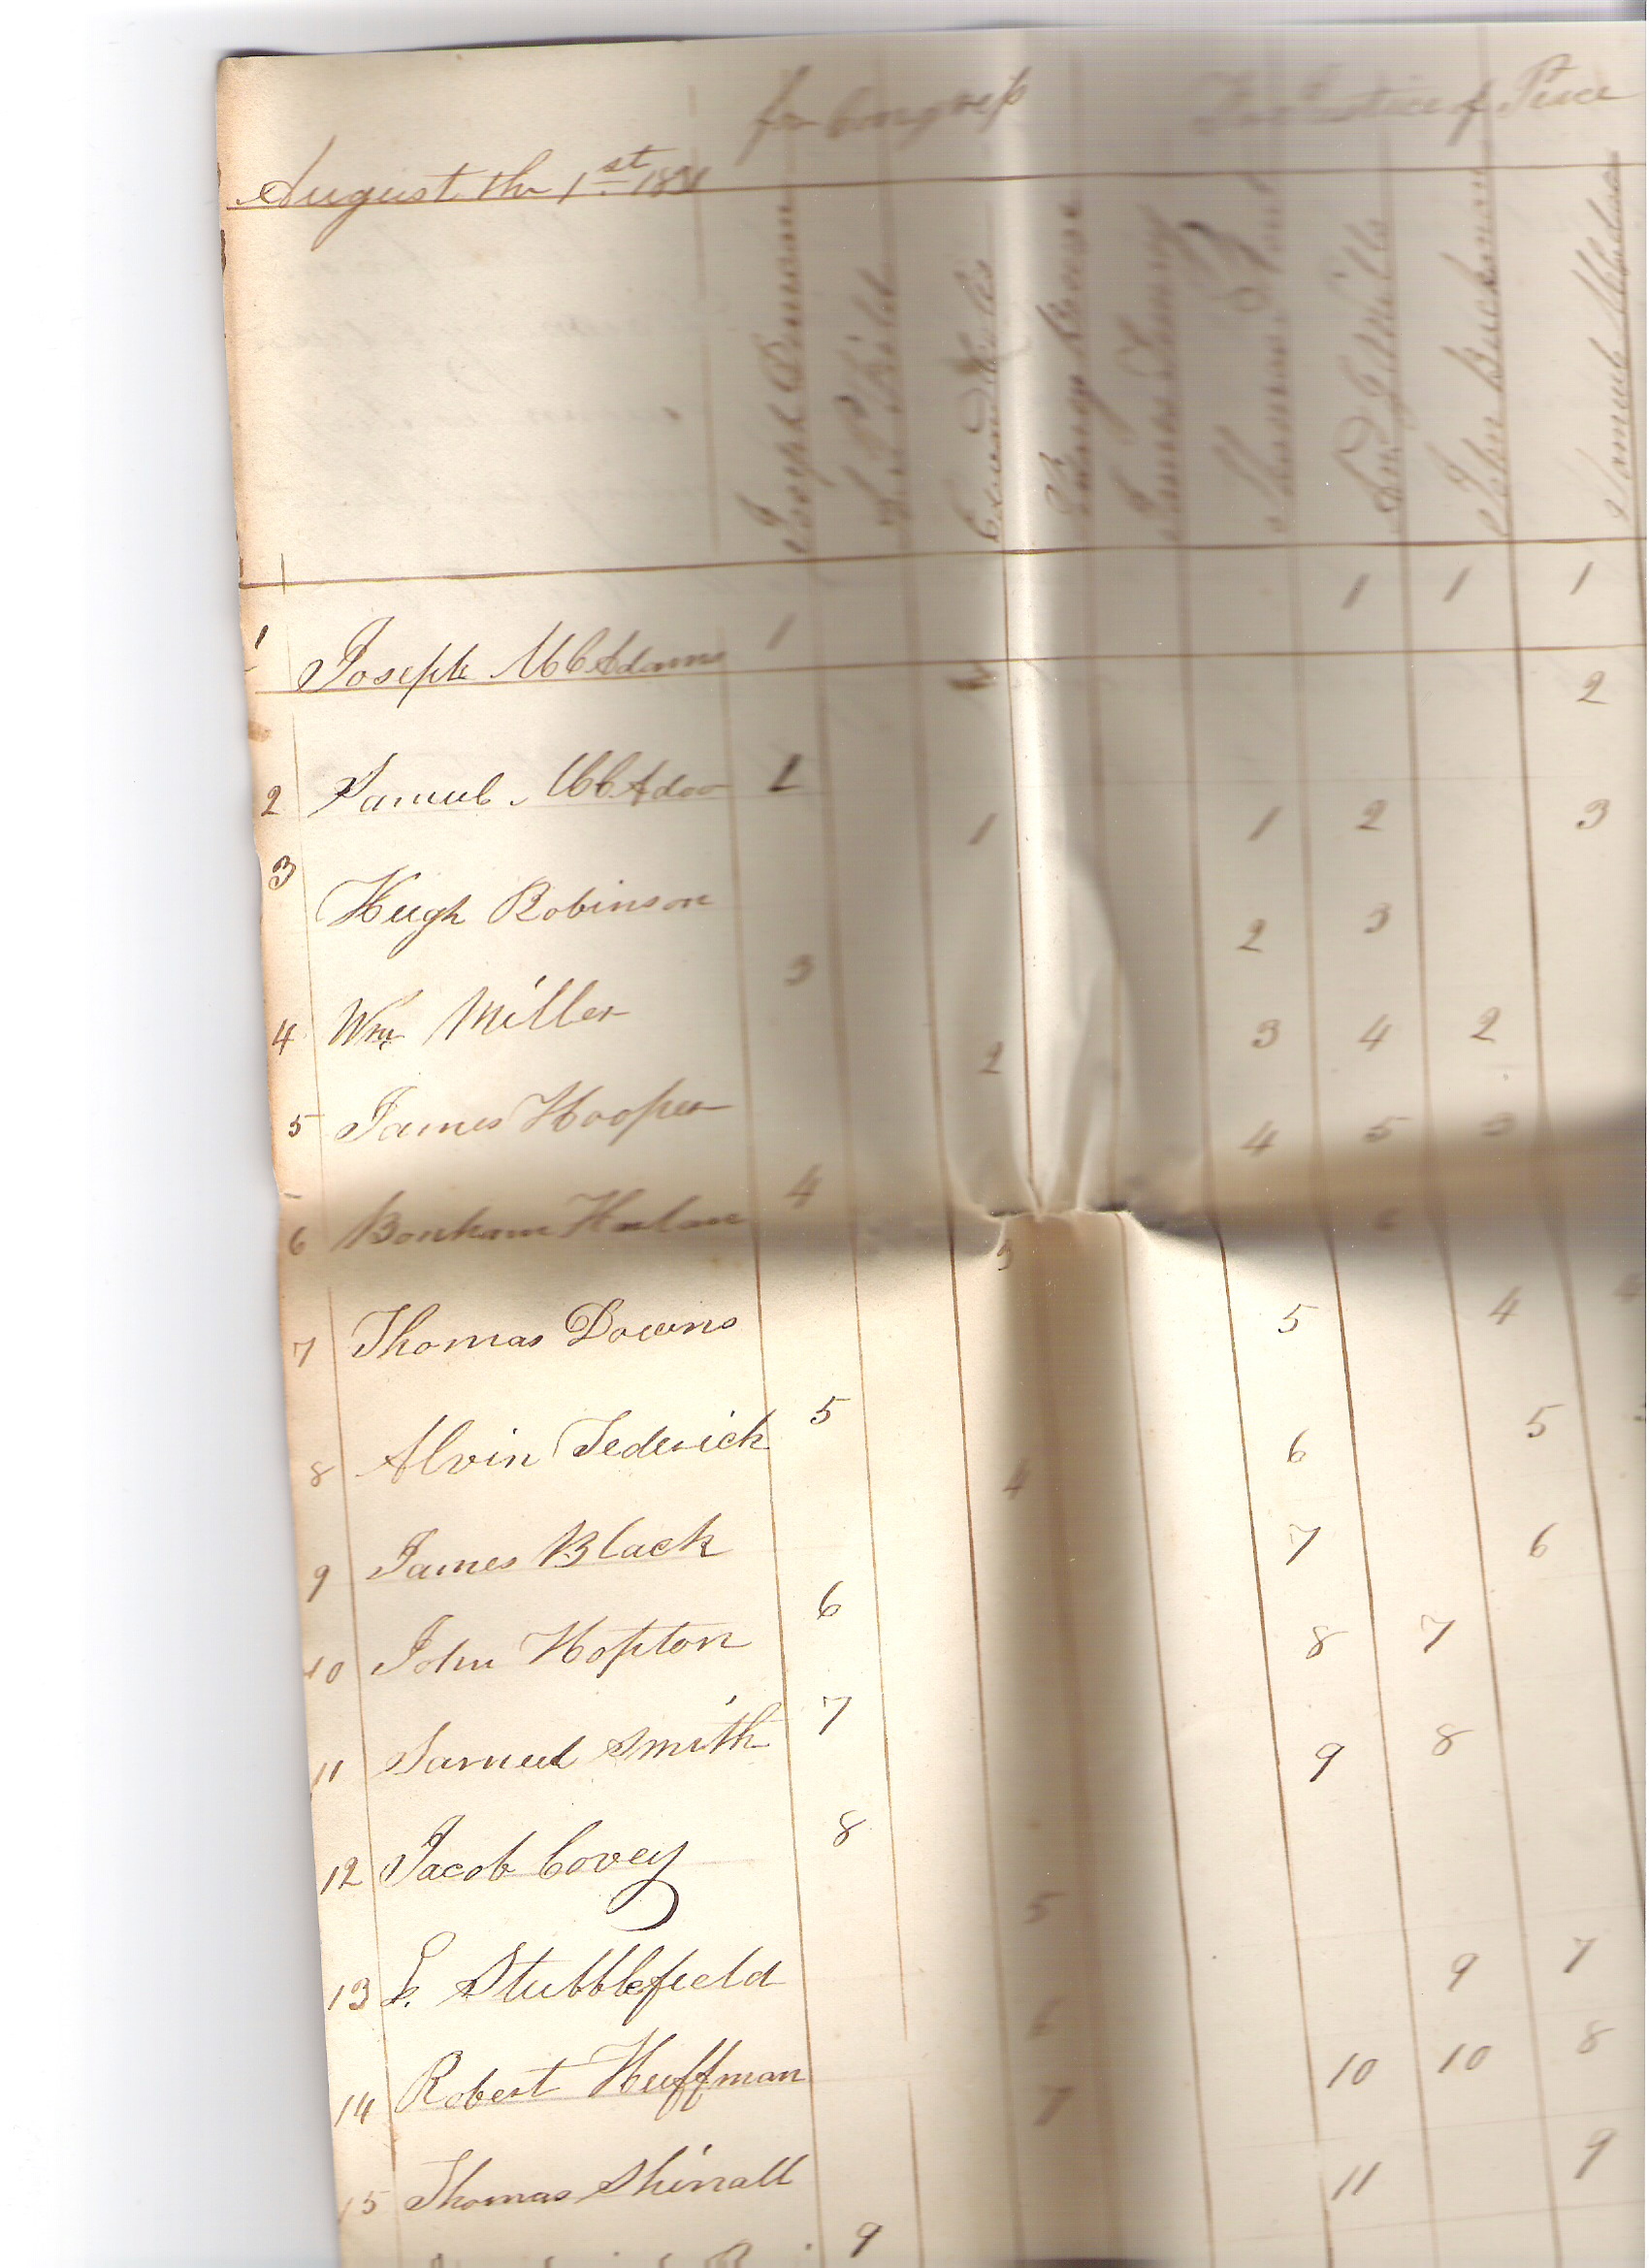 for Congress
For Justice of Peace
August the 1st 1831
Joseph Duncan
Coles
James
Mills
John Buckman
1 Joseph McAdams 1 1 1 1
2 Samuel McAdoo 2 2
3 Hugh Robinson 1 1 2 3
4 Wm Miller 3 2 3
5 James Hooper 2 3 4 2
6 Bonham Harlan 4 4 5 3
7 Thomas Downs 3 5 6 4 4
8 Alvin Sedwick 5 6 5
9 James Black 4 7 6
10 John Hopton 6 8 7
11 Samuel Smith 7 9 8
12 Jacob Covey 8
13 E. Stubblefield 5 9 7
14 Robert Huffman 6 10 10 8
15 Thomas Shinall 7 11 9
9